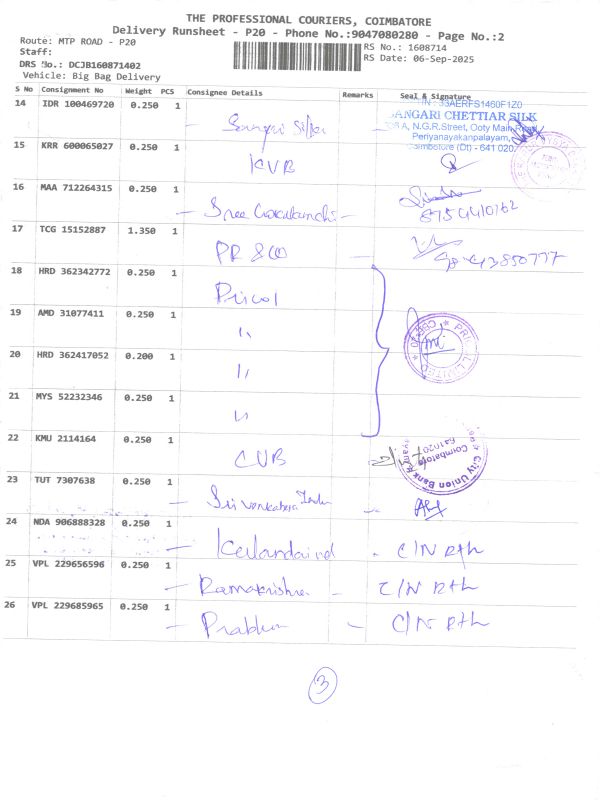 THE PROFESSIONAL COURIERS, COIMBATORE
Delivery Runsheet - P20 - Phone No.:9047080280 - Page No.:2
Route: MTP ROAD - P20
RS No.: 1608714
Staff:
RS Date: 06-Sep-2025
DRS No.: DCJB160871402
Vehicle: Big Bag Delivery
S No Consignment No Weight PCS Consignee Details Remarks Seal & Signature
14 IDR 100469720 0.250 1
IN : 33AERFS1460F1Z0
SANGARI CHETTIAR SILK
A, N.G.R.Street, Ooty Main Road,
Periyanayakanpalayam,
Coimbatore (Dt) - 641 020.
15 KRR 600065027 0.250 1 KVB
16 MAA 712264315 0.250 1 - Sree -
17 TCG 15152887 1.350 1 PR & CO -
18 HRD 362342772 0.250 1 Pricol
19 AMD 31077411 0.250 1 "
PRICOL LIMITED
20 HRD 362417052 0.200 1 "
21 MYS 52232346 0.250 1 "
22 KMU 2114164 0.250 1 CUB
City Union Bank
Coimbatore
23 TUT 7307638 0.250 1 - Sri Venkatesa -
24 NDA 906888328 0.250 1 - - C/N Rth
25 VPL 229656596 0.250 1 - Ramakrishna - C/N Rth
26 VPL 229685965 0.250 1 - Prabhu - C/N Rth
3